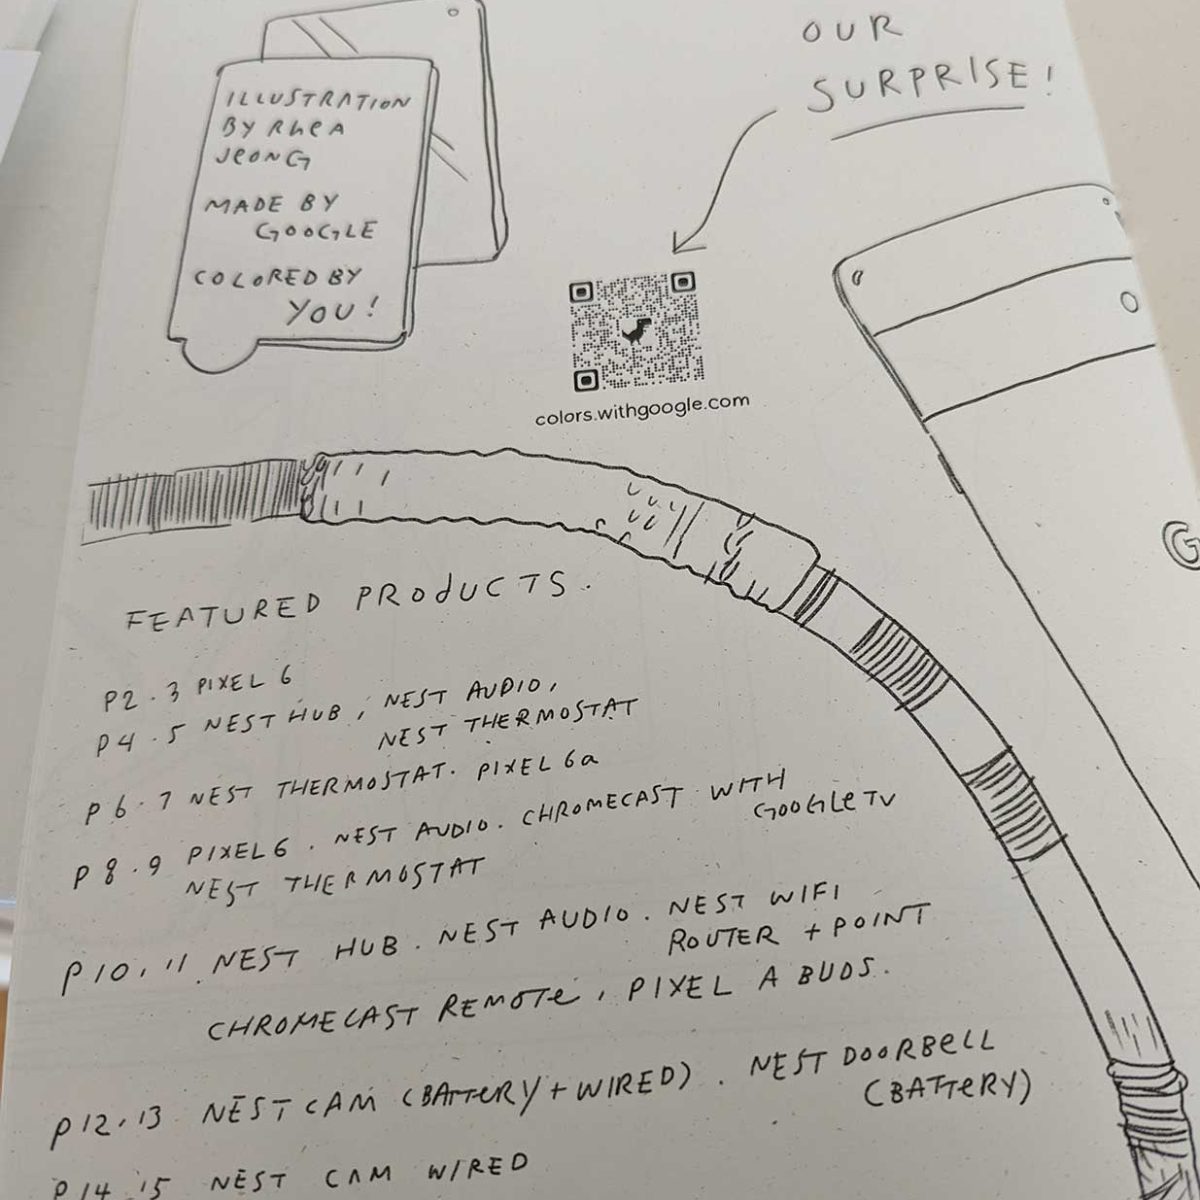 OUR
SURPRISE!
ILLUSTRATION
BY RHEA
JEONG
MADE BY
GOOGLE
COLORED BY
YOU!
colors.withgoogle.com
G
FEATURED PRODUCTS.
P2.3 PIXEL 6
P4.5 NEST HUB, NEST AUDIO,
NEST THERMOSTAT
P6.7 NEST THERMOSTAT. PIXEL 6a
P8.9 PIXEL6. NEST AUDIO. CHROMECAST WITH
GOOGLE TV
NEST THERMOSTAT
P10.11 NEST HUB. NEST AUDIO. NEST WIFI
ROUTER + POINT
CHROMECAST REMOTE, PIXEL A BUDS.
P12.13 NEST CAM (BATTERY + WIRED). NEST DOORBELL
(BATTERY)
P14.15 NEST CAM WIRED